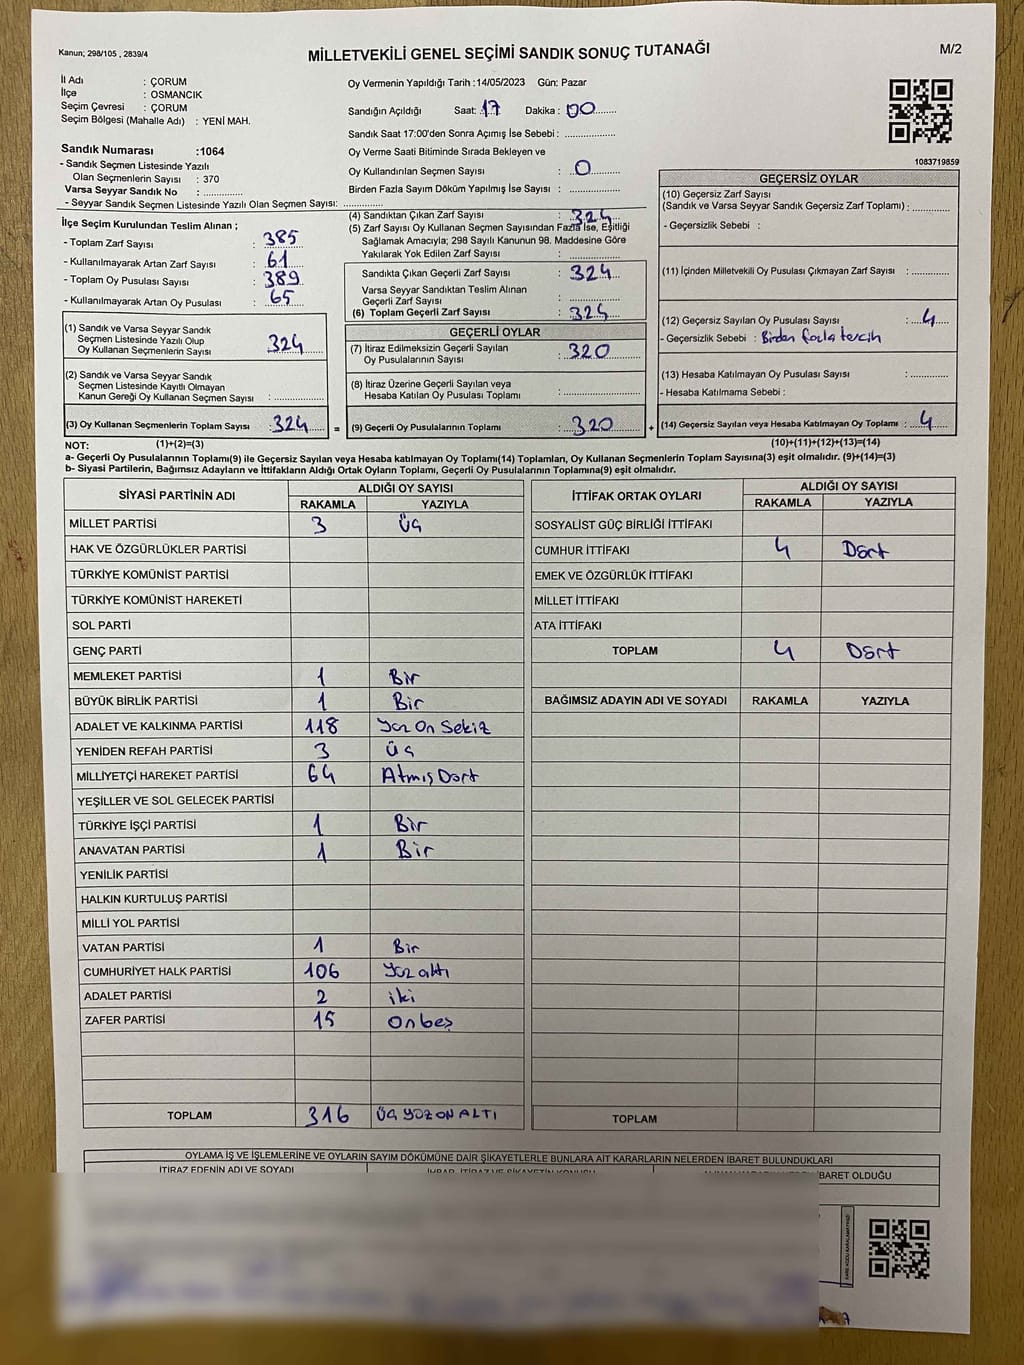 Kanun; 298/105 , 2839/4
MİLLETVEKİLİ GENEL SEÇİMİ SANDIK SONUÇ TUTANAĞI
M/2
İl Adı : ÇORUM
İlçe : OSMANCIK
Seçim Çevresi : ÇORUM
Seçim Bölgesi (Mahalle Adı) : YENİ MAH.
Sandık Numarası :1064
- Sandık Seçmen Listesinde Yazılı
Olan Seçmenlerin Sayısı : 370
Varsa Seyyar Sandık No : ............
- Seyyar Sandık Seçmen Listesinde Yazılı Olan Seçmen Sayısı: ............
Oy Vermenin Yapıldığı Tarih :14/05/2023 Gün: Pazar
Sandığın Açıldığı Saat: 17 Dakika : 00
Sandık Saat 17:00'den Sonra Açımış İse Sebebi : ............
Oy Verme Saati Bitiminde Sırada Bekleyen ve
Oy Kullandırılan Seçmen Sayısı : 0
Birden Fazla Sayım Döküm Yapılmış İse Sayısı : ............
1083719859
İlçe Seçim Kurulundan Teslim Alınan ;
- Toplam Zarf Sayısı : 385
- Kullanılmayarak Artan Zarf Sayısı : 61
- Toplam Oy Pusulası : 389
- Kullanılmayarak Artan Oy Pusulası : 65
(1) Sandık ve Varsa Seyyar Sandık
Seçmen Listesinde Yazılı Olup
Oy Kullanan Seçmenlerin Sayısı : 324
(2) Sandık ve Varsa Seyyar Sandık
Seçmen Listesinde Kayıtlı Olmayan
Kanun Gereği Oy Kullanan Seçmen Sayısı : ............
(3) Oy Kullanan Seçmenlerin Toplam Sayısı : 324 =
(4) Sandıktan Çıkan Zarf Sayısı : 324
(5) Zarf Sayısı Oy Kullanan Seçmen Sayısından Fazla İse, Eşitliği
Sağlamak Amacıyla; 298 Sayılı Kanunun 98. Maddesine Göre
Yakılarak Yok Edilen Zarf Sayısı : ............
Sandıkta Çıkan Geçerli Zarf Sayısı : 324
Varsa Seyyar Sandıktan Teslim Alınan
Geçerli Zarf Sayısı : ............
(6) Toplam Geçerli Zarf Sayısı : 324
GEÇERLİ OYLAR
(7) İtiraz Edilmeksizin Geçerli Sayılan
Oy Pusulalarının Sayısı : 320
(8) İtiraz Üzerine Geçerli Sayılan veya
Hesaba Katılan Oy Pusulası Toplamı : ............
(9) Geçerli Oy Pusulalarının Toplamı : 320 +
GEÇERSİZ OYLAR
(10) Geçersiz Zarf Sayısı
(Sandık ve Varsa Seyyar Sandık Geçersiz Zarf Toplamı) : ............
- Geçersizlik Sebebi :
(11) İçinden Milletvekili Oy Pusulası Çıkmayan Zarf Sayısı : ............
(12) Geçersiz Sayılan Oy Pusulası Sayısı : 4
- Geçersizlik Sebebi : Birden fazla tercih
(13) Hesaba Katılmayan Oy Pusulası Sayısı : ............
- Hesaba Katılmama Sebebi :
(14) Geçersiz Sayılan veya Hesaba Katılmayan Oy Toplamı : 4
NOT: (1)+(2)=(3) (10)+(11)+(12)+(13)=(14)
a- Geçerli Oy Pusulalarının Toplamı(9) ile Geçersiz Sayılan veya Hesaba katılmayan Oy Toplamı(14) Toplamları, Oy Kullanan Seçmenlerin Toplam Sayısına(3) eşit olmalıdır. (9)+(14)=(3)
b- Siyasi Partilerin, Bağımsız Adayların ve İttifakların Aldığı Ortak Oyların Toplamı, Geçerli Oy Pusulalarının Toplamına(9) eşit olmalıdır.
SİYASİ PARTİNİN ADI ALDIĞI OY SAYISI
RAKAMLA YAZIYLA
MİLLET PARTİSİ 3 Üç
HAK VE ÖZGÜRLÜKLER PARTİSİ
TÜRKİYE KOMÜNİST PARTİSİ
TÜRKİYE KOMÜNİST HAREKETİ
SOL PARTİ
GENÇ PARTİ
MEMLEKET PARTİSİ 1 Bir
BÜYÜK BİRLİK PARTİSİ 1 Bir
ADALET VE KALKINMA PARTİSİ 118 Yüz On Sekiz
YENİDEN REFAH PARTİSİ 3 Üç
MİLLİYETÇİ HAREKET PARTİSİ 64 Atmış Dört
YEŞİLLER VE SOL GELECEK PARTİSİ
TÜRKİYE İŞÇİ PARTİSİ 1 Bir
ANAVATAN PARTİSİ 1 Bir
YENİLİK PARTİSİ
HALKIN KURTULUŞ PARTİSİ
MİLLİ YOL PARTİSİ
VATAN PARTİSİ 1 Bir
CUMHURİYET HALK PARTİSİ 106 Yüz altı
ADALET PARTİSİ 2 iki
ZAFER PARTİSİ 15 Onbeş
TOPLAM 316 ÜÇ YÜZ ON ALTI
İTTİFAK ORTAK OYLARI ALDIĞI OY SAYISI
RAKAMLA YAZIYLA
SOSYALİST GÜÇ BİRLİĞİ İTTİFAKI
CUMHUR İTTİFAKI 4 Dört
EMEK VE ÖZGÜRLÜK İTTİFAKI
MİLLET İTTİFAKI
ATA İTTİFAKI
TOPLAM 4 Dört
BAĞIMSIZ ADAYIN ADI VE SOYADI RAKAMLA YAZIYLA
TOPLAM
OYLAMA İŞ VE İŞLEMLERİNE VE OYLARIN SAYIM DÖKÜMÜNE DAİR ŞİKAYETLERLE BUNLARA AİT KARARLARIN NELERDEN İBARET BULUNDUKLARI
İTİRAZ EDENİN ADI VE SOYADI İHBAR, İTİRAZ VE ŞİKAYETİN KONUSU İBARET OLDUĞU